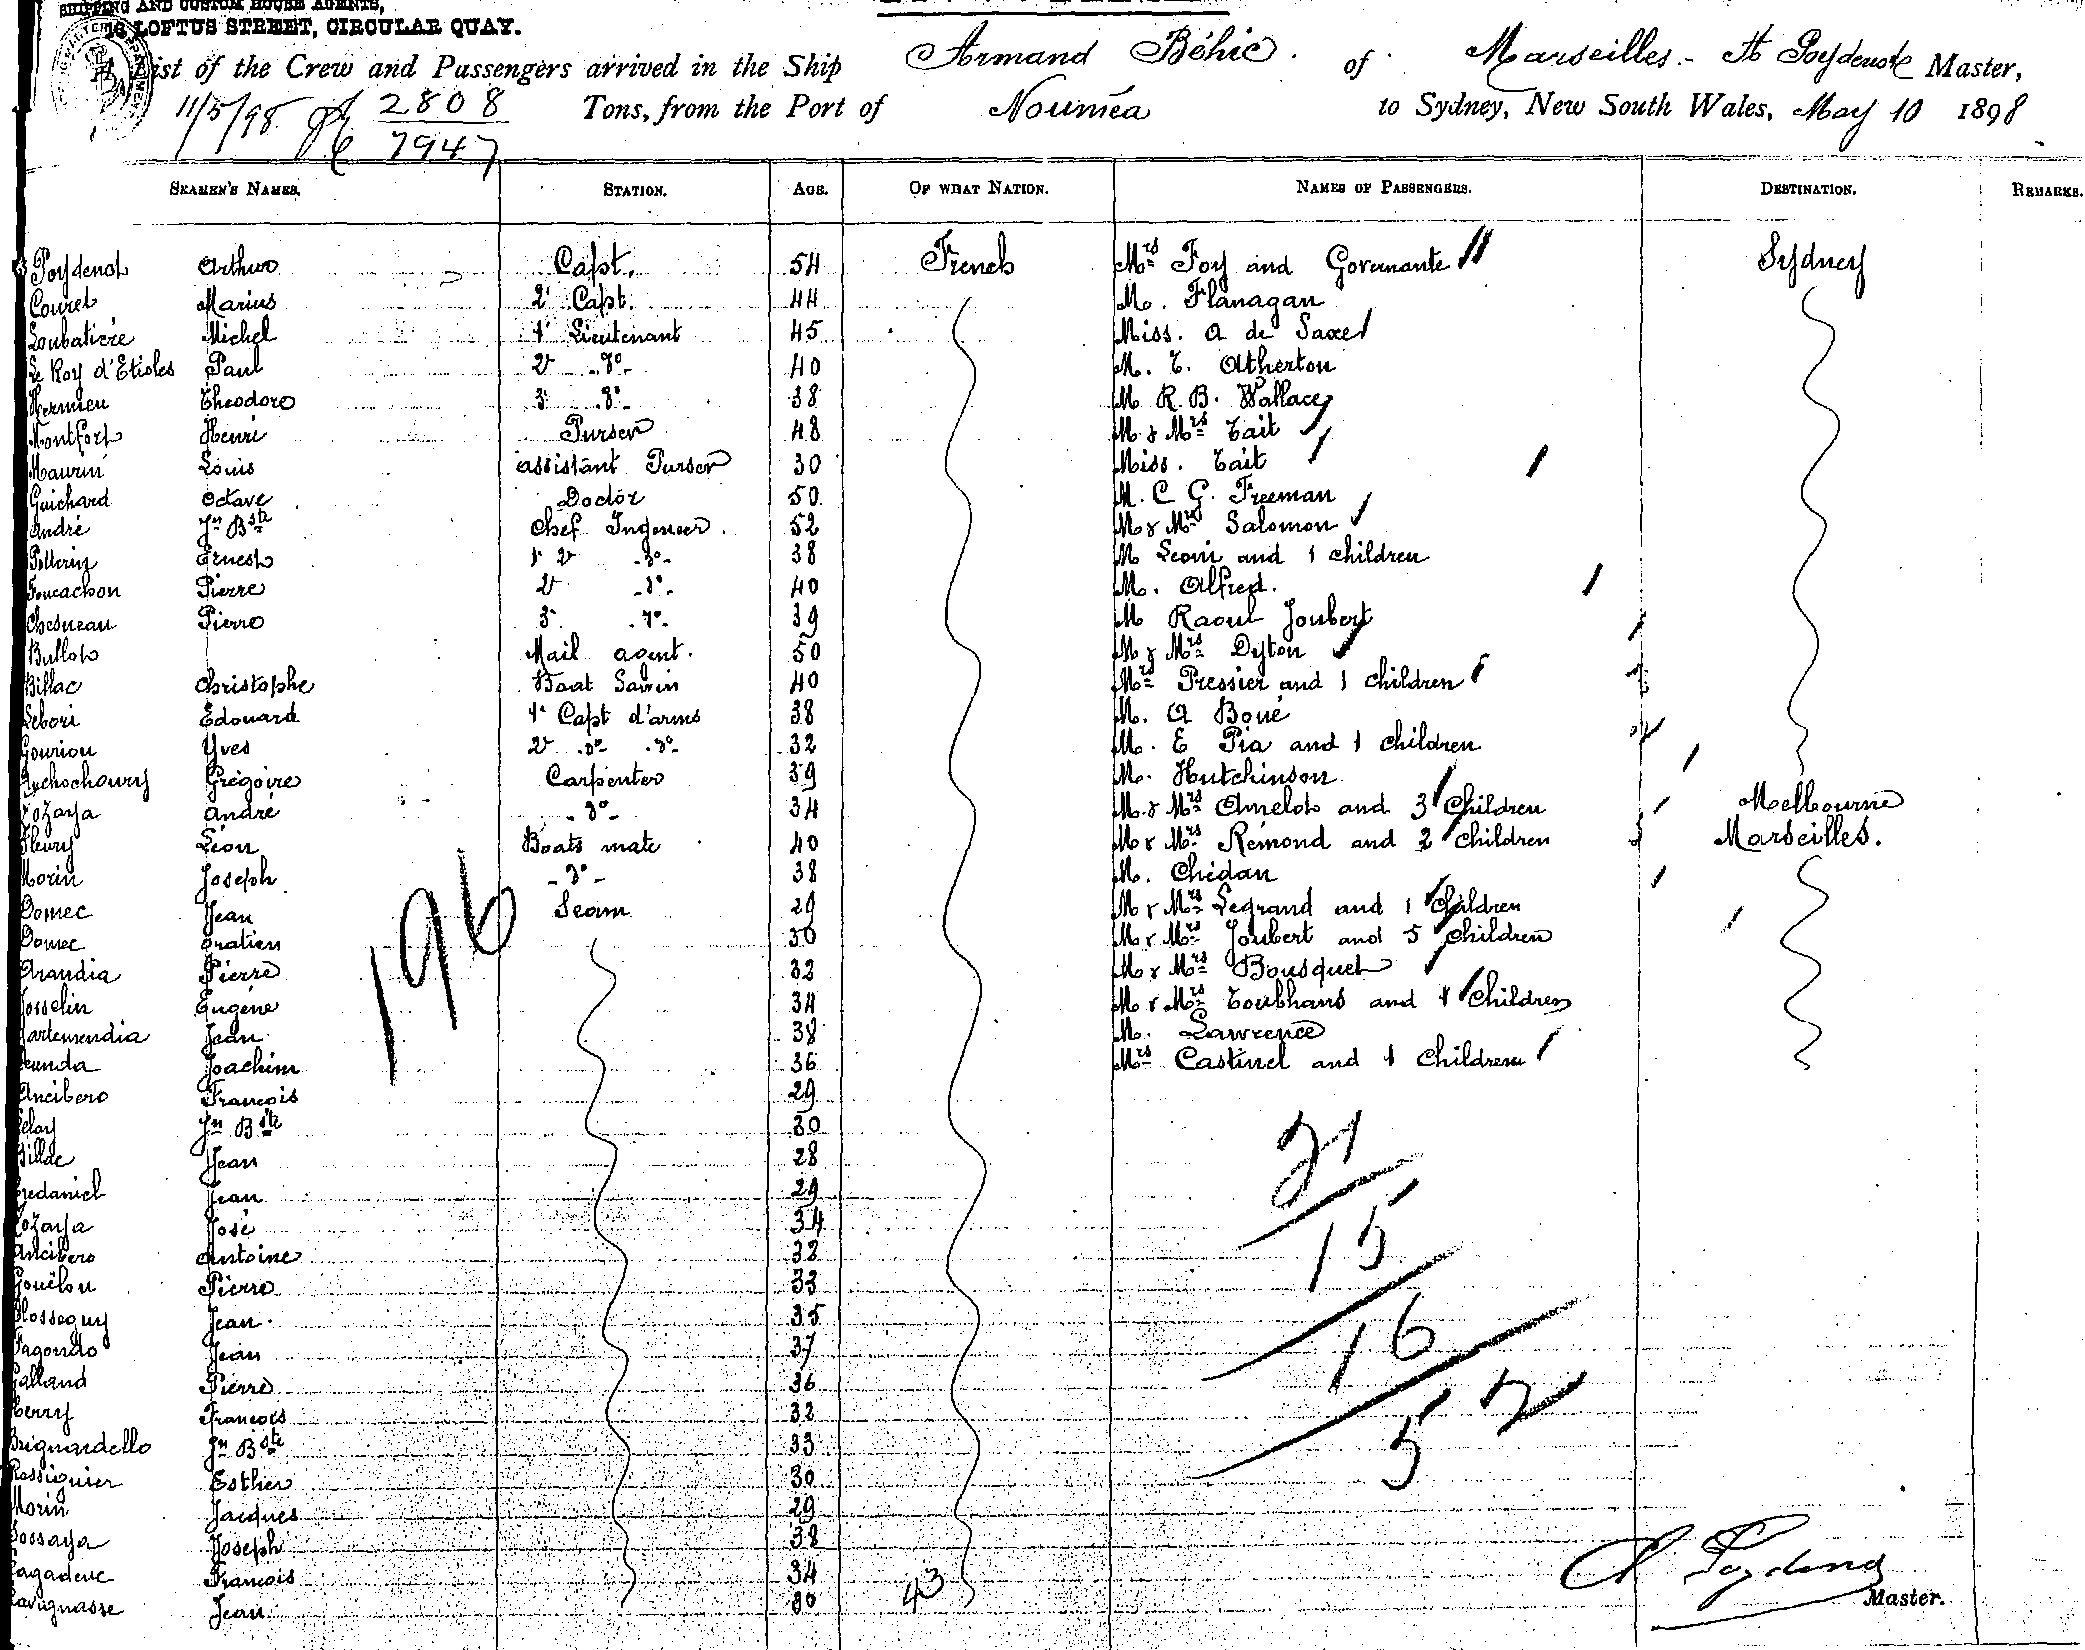 SHIPPING AND CUSTOM HOUSE AGENTS,
LOFTUS STREET, CIRCULAR QUAY.
A List of the Crew and Passengers arrived in the Ship Armand Béhic. of Marseilles - A Poydenot Master,
11/5/98 2808 Tons, from the Port of Nouméa to Sydney, New South Wales, May 10 1898
7947
SEAMEN'S NAMES. STATION. AGE. OF WHAT NATION. NAMES OF PASSENGERS. DESTINATION. REMARKS.
Poydenot Arthur Capt. 54 French Mrs Foy and Governante Sydney
Couret Marius 2d Capt. 44 M. Flanagan
Loubatière Michel 1r Lieutenant 45 Miss. A de Saxe
Le Roy d'Etioles Paul 2d -do- 40 M. E. Atherton
Hermieu Theodore 3 -do- 38 M R.B. Wallace
Montfort Henri Purser 48 M & Mrs Tait
Maurin Louis assistant Purser 30 Miss. Tait
Guichard Octave Doctor 50 M. C G. Freeman
André Jn Bste Chef Ingeneer. 52 M & Mrs Salomon
Pellerin Ernest 1r 2d -do- 38 M Leoni and 1 children
Foucachon Pierre 2d -do- 40 M. Alfred.
Chesneau Pierre 3 -do- 39 M Raoul Joubert
Bullot Mail agent. 50 M & Mrs Dyton
Billac Christophe Boat Swain 40 Mrs Pressier and 1 children
Lebori Edouard 1r Capt d'arms 38 M. A Boué
Gouriou Yves 2d -do- -do- 32 M. E Pia and 1 children
Grégoire Carpenter 39 M. Hutchinson
Lozaya André -do- 34 M. & Mrs Amelot and 3 Children Melbourne
Fleury Léon Boats mate 40 M & Mrs Rémond and 2 children Marseilles.
Morin Joseph -do- 38 M. Chidan
Domec Jean Seam 29 M & Mrs Legrand and 1 Children
Domec Gratien 30 M & Mrs Joubert and 5 children
Arandia Pierre 32 M & Mrs Bousquet
Josselin Eugène 34 M & Mrs Toubhans and 1 Children
Hartemendia Jean 38 M. Lawrence
Joachim 36 Mrs Castinel and 1 Children
Ancibero François 29
Jn Bste 30
Billde Jean 28
Jean 29
Lozaya José 34
Ancibero Antoine 32
Gouëlou Pierre 33
Jean. 35
Jean 37
Galland Pierre 36
François 32
Brignardello Jn Bste 33
Rossignier Esther 30
Morin Jacques 29
Joseph 38
Lagadeuc François 34
Lavignasse Jean 30
196
43
21
15
16
52
A Poydenot
Master.